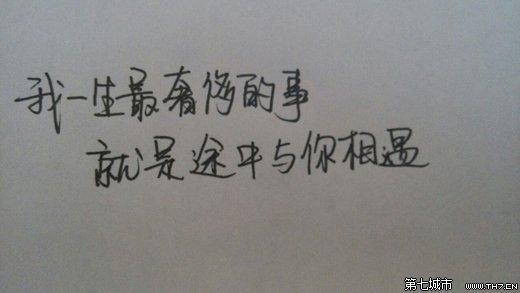 我一生最奢侈的事
就是途中与你相遇
第七城市 WWW.TH7.CN